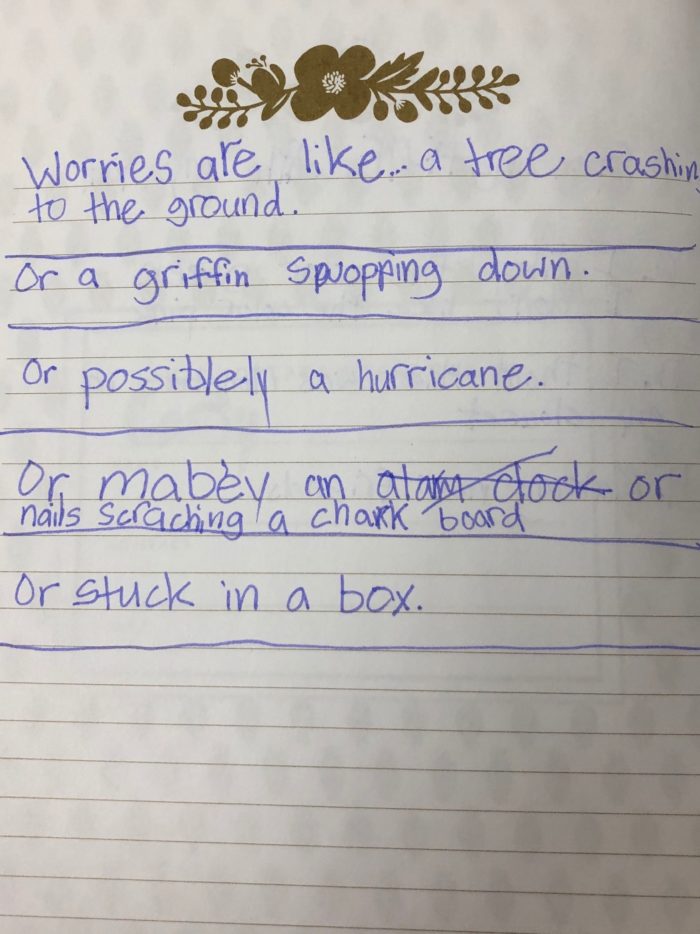 Worries are like... a tree crashin
to the ground.
Or a griffin spuopping down.
Or possiblely a hurricane.
Or mabey an alarm clock or
nails scraching a chark board
Or stuck in a box.